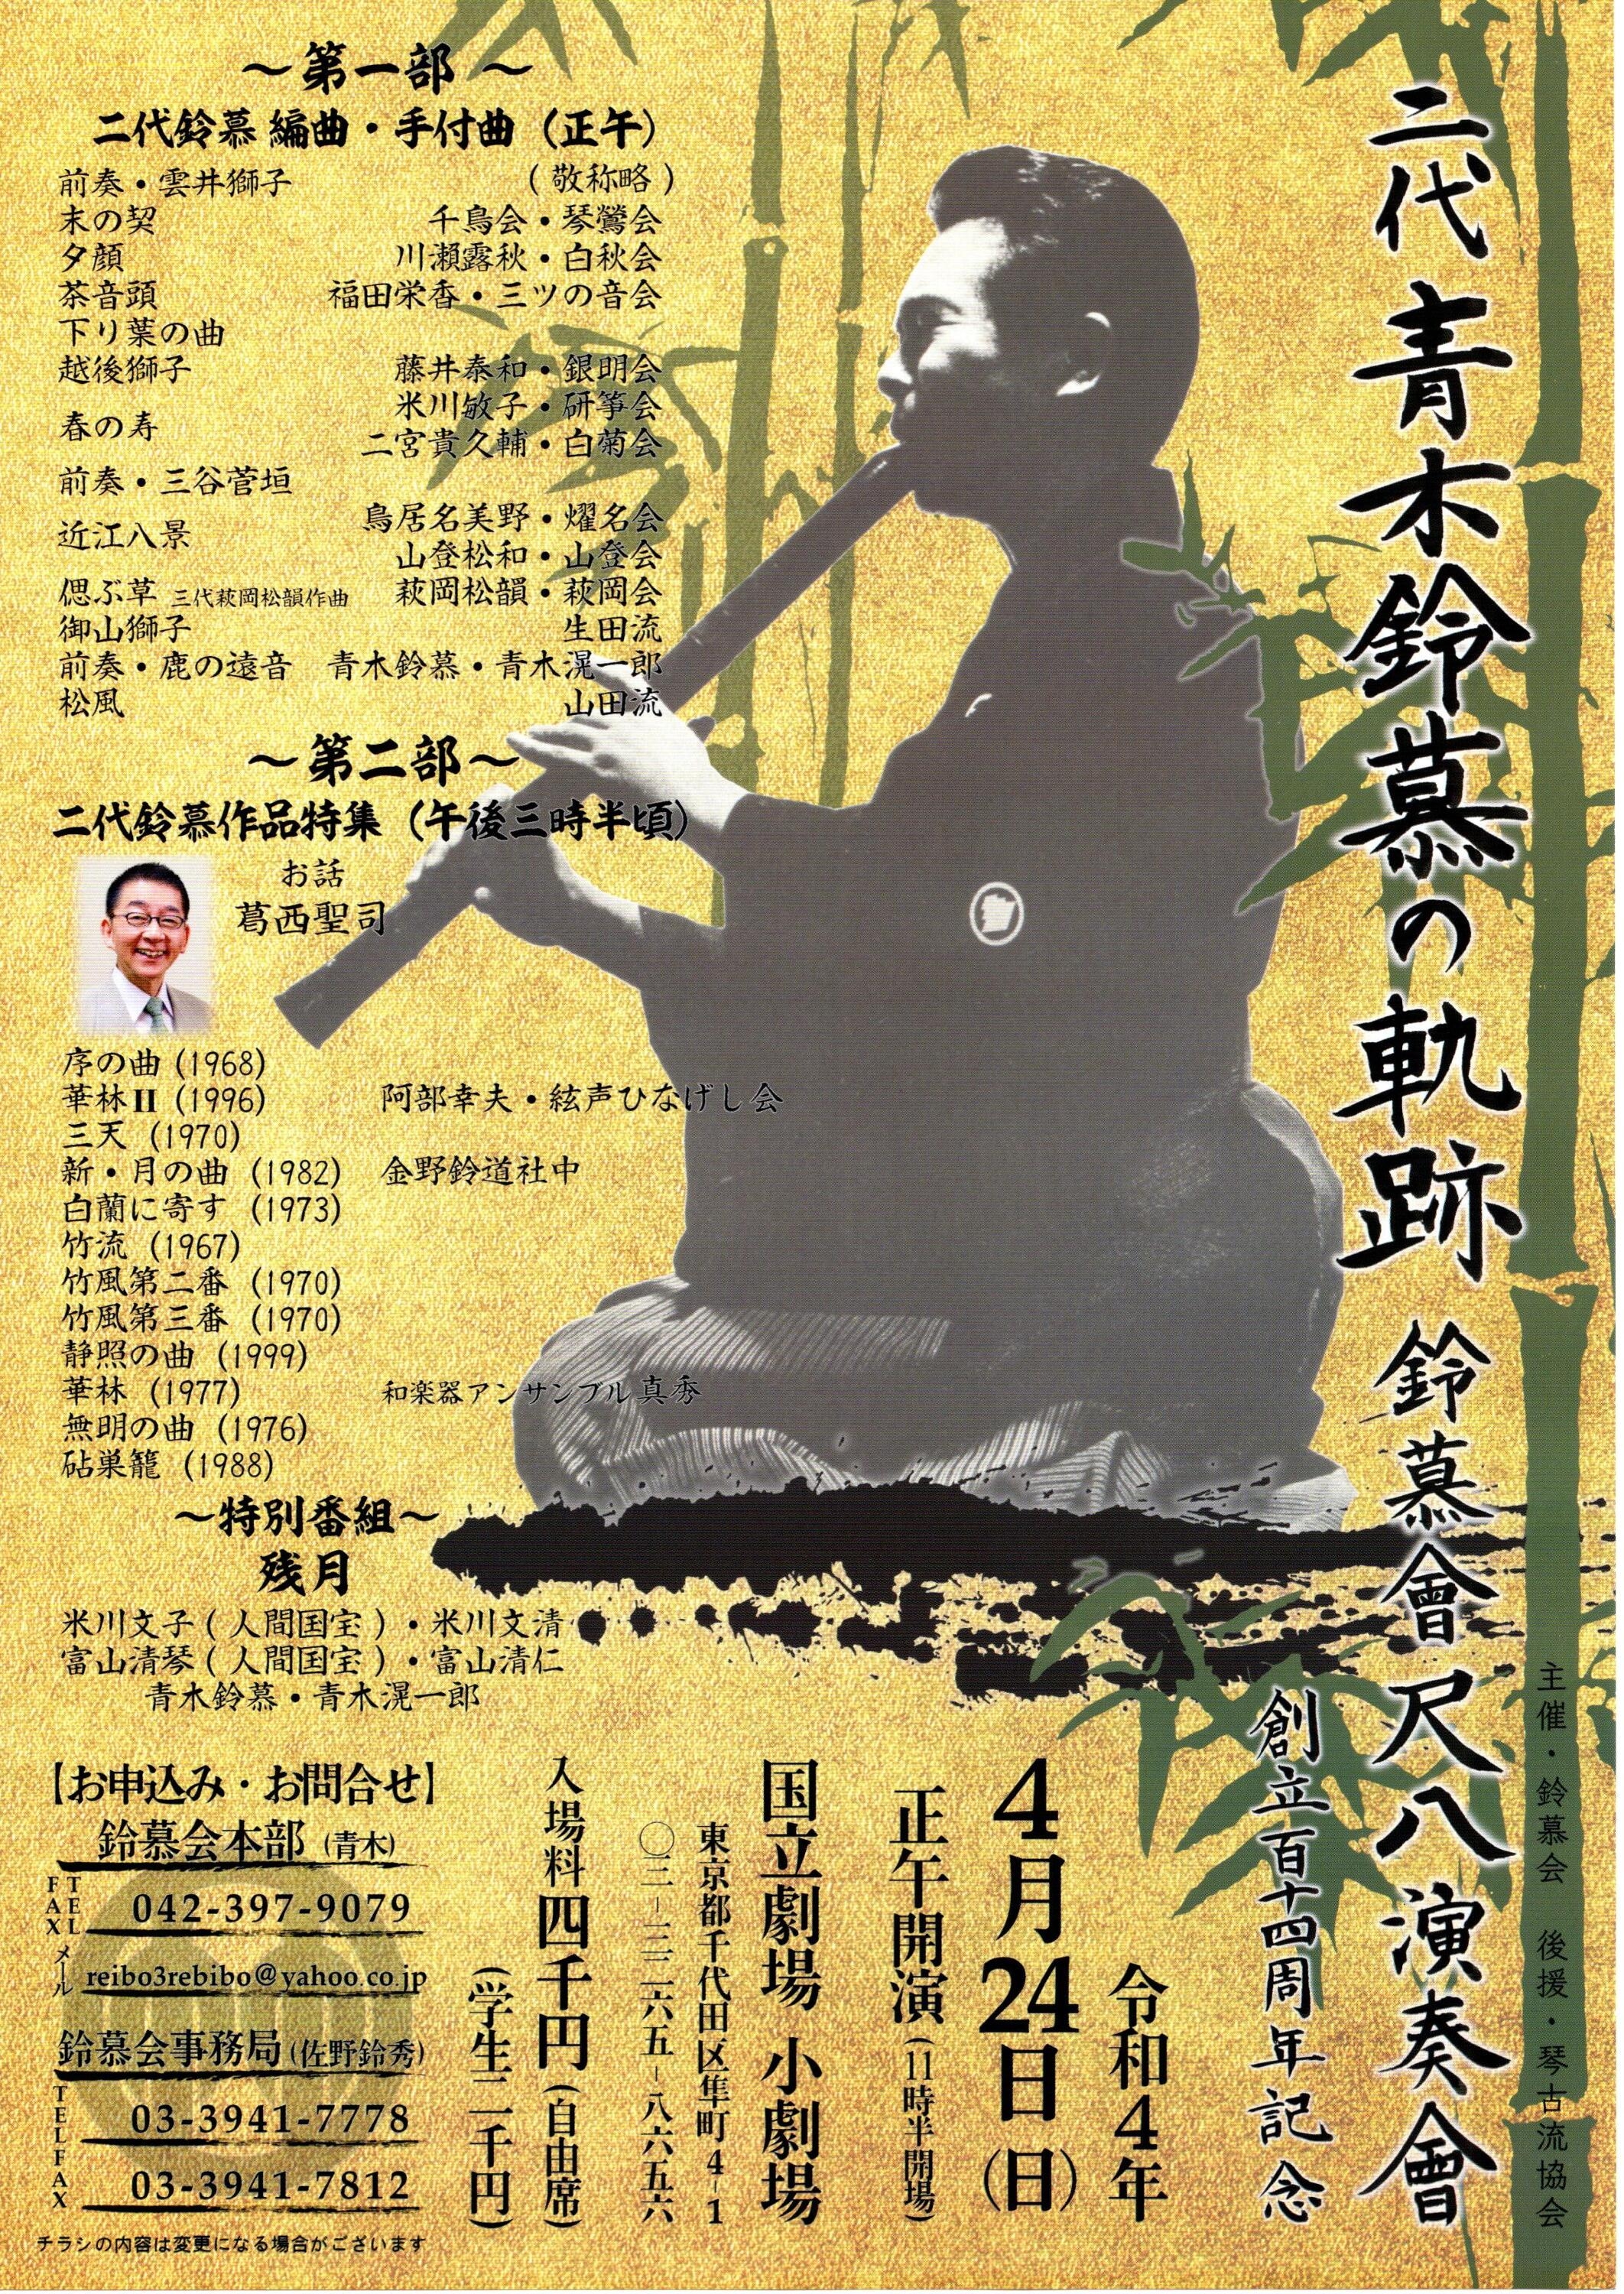 二代 青木鈴慕の軌跡 鈴慕會 尺八演奏會
創立百十四周年記念
主催・鈴慕会 後援・琴古流協会
～第一部～
二代鈴慕 編曲・手付曲（正午）
(敬称略)
前奏・雲井獅子
末の契 千鳥会・琴鶯会
夕顔 川瀬露秋・白秋会
茶音頭 福田栄香・三ツの音会
下り葉の曲
越後獅子 藤井泰和・銀明会
春の寿 米川敏子・研箏会
二宮貴久輔・白菊会
前奏・三谷菅垣
近江八景 鳥居名美野・燿名会
山登松和・山登会
偲ぶ草 三代萩岡松韻作曲 萩岡松韻・萩岡会
御山獅子 生田流
前奏・鹿の遠音 青木鈴慕・青木滉一郎
松風 山田流
～第二部～
二代鈴慕作品特集（午後三時半頃）
お話
葛西聖司
序の曲 (1968)
華林II (1996) 阿部幸夫・絃声ひなげし会
三天 (1970)
新・月の曲 (1982) 金野鈴道社中
白蘭に寄す (1973)
竹流 (1967)
竹風第二番 (1970)
竹風第三番 (1970)
静照の曲 (1999)
華林 (1977) 和楽器アンサンブル真秀
無明の曲 (1976)
砧巣籠 (1988)
～特別番組～
残月
米川文子(人間国宝)・米川文清
富山清琴(人間国宝)・富山清仁
青木鈴慕・青木滉一郎
令和4年
4月24日(日)
正午開演(11時半開場)
国立劇場 小劇場
東京都千代田区隼町4-1
〇三-三二六五-八六五六
入場料 四千円(自由席)
(学生二千円)
【お申込み・お問合せ】
鈴慕会本部 (青木)
TEL FAX 042-397-9079
メール reibo3rebibo@yahoo.co.jp
鈴慕会事務局(佐野鈴秀)
TEL 03-3941-7778
FAX 03-3941-7812
チラシの内容は変更になる場合がございます